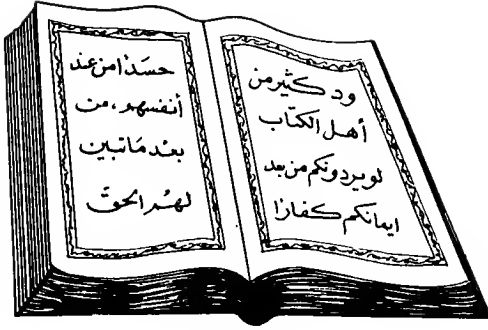 ود كثير من
أهل الكتاب
لو يردونكم من بعد
ايمانكم كفارًا
حسدًا من عند
أنفسهم، من
بعد ما تبين
لهم الحق